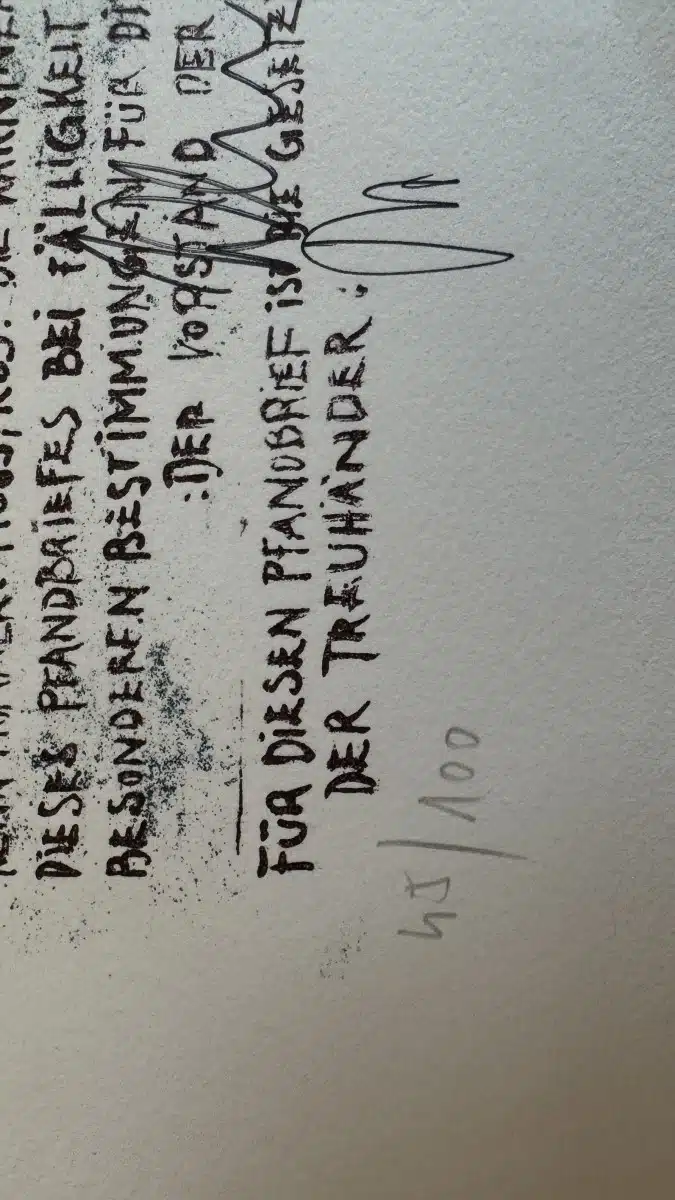 DIESES PFANDBRIEFES BEI FÄLLIGKEIT
BESONDEREN BESTIMMUNGEN FÜR DI
:DER VORSTAND DER
FÜR DIESEN PFANDBRIEF IST DIE GESETZ
DER TREUHÄNDER:
45/100